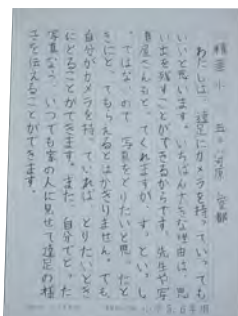 精華小　五年　河原　
わたしは、遠足にカメラを持っていっても
いいと思います。いちばん大きな理由は、思
い出を残すことができるからです。先生や写
真屋さんもとってくれますが、ずっといっしょ
ではないので、写真をとりたいと思ったと
きにとってもらえるとはかぎりません。でも、
自分がカメラを持っていれば、とりたいとき
にとることができます。また、自分でとった
写真なら、いつでも家の人に見せて遠足の様
子を伝えることができます。